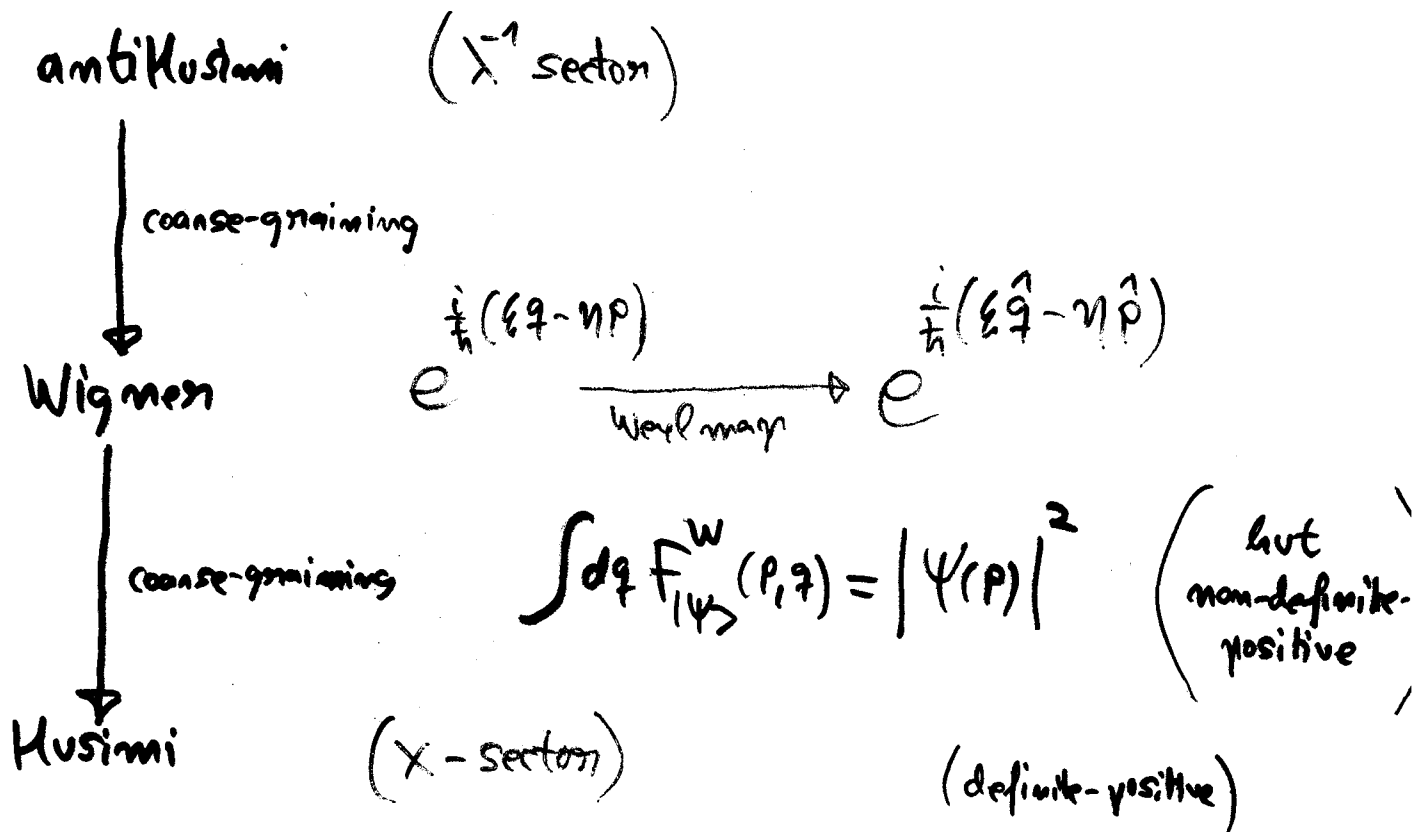 antiHusimi (λ⁻¹ sector)
coarse-graining
Wigner e^{i/ħ(ξq-ηp)} → e^{i/ħ(ξq̂-ηp̂)}
Weyl map
coarse-graining ∫dq F^W_{|ψ>}(p,q) = |Ψ(p)|² (but
non-definite-
positive)
Husimi (λ-sector) (definite-positive)